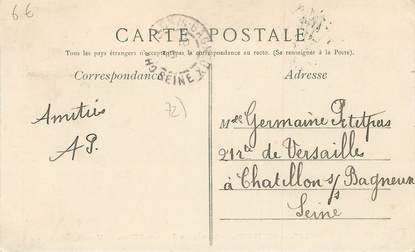 6 €
CARTE POSTALE
Tous les pays étrangers n'acceptent pas la correspondance au recto. (Se renseigner à la Poste).
Correspondance
Adresse
Amitiés
AP.
72)
SEINE
Mlle Germaine Petitpas
21 rte de Versaille
à Chatillon s/s Bagneux
Seine